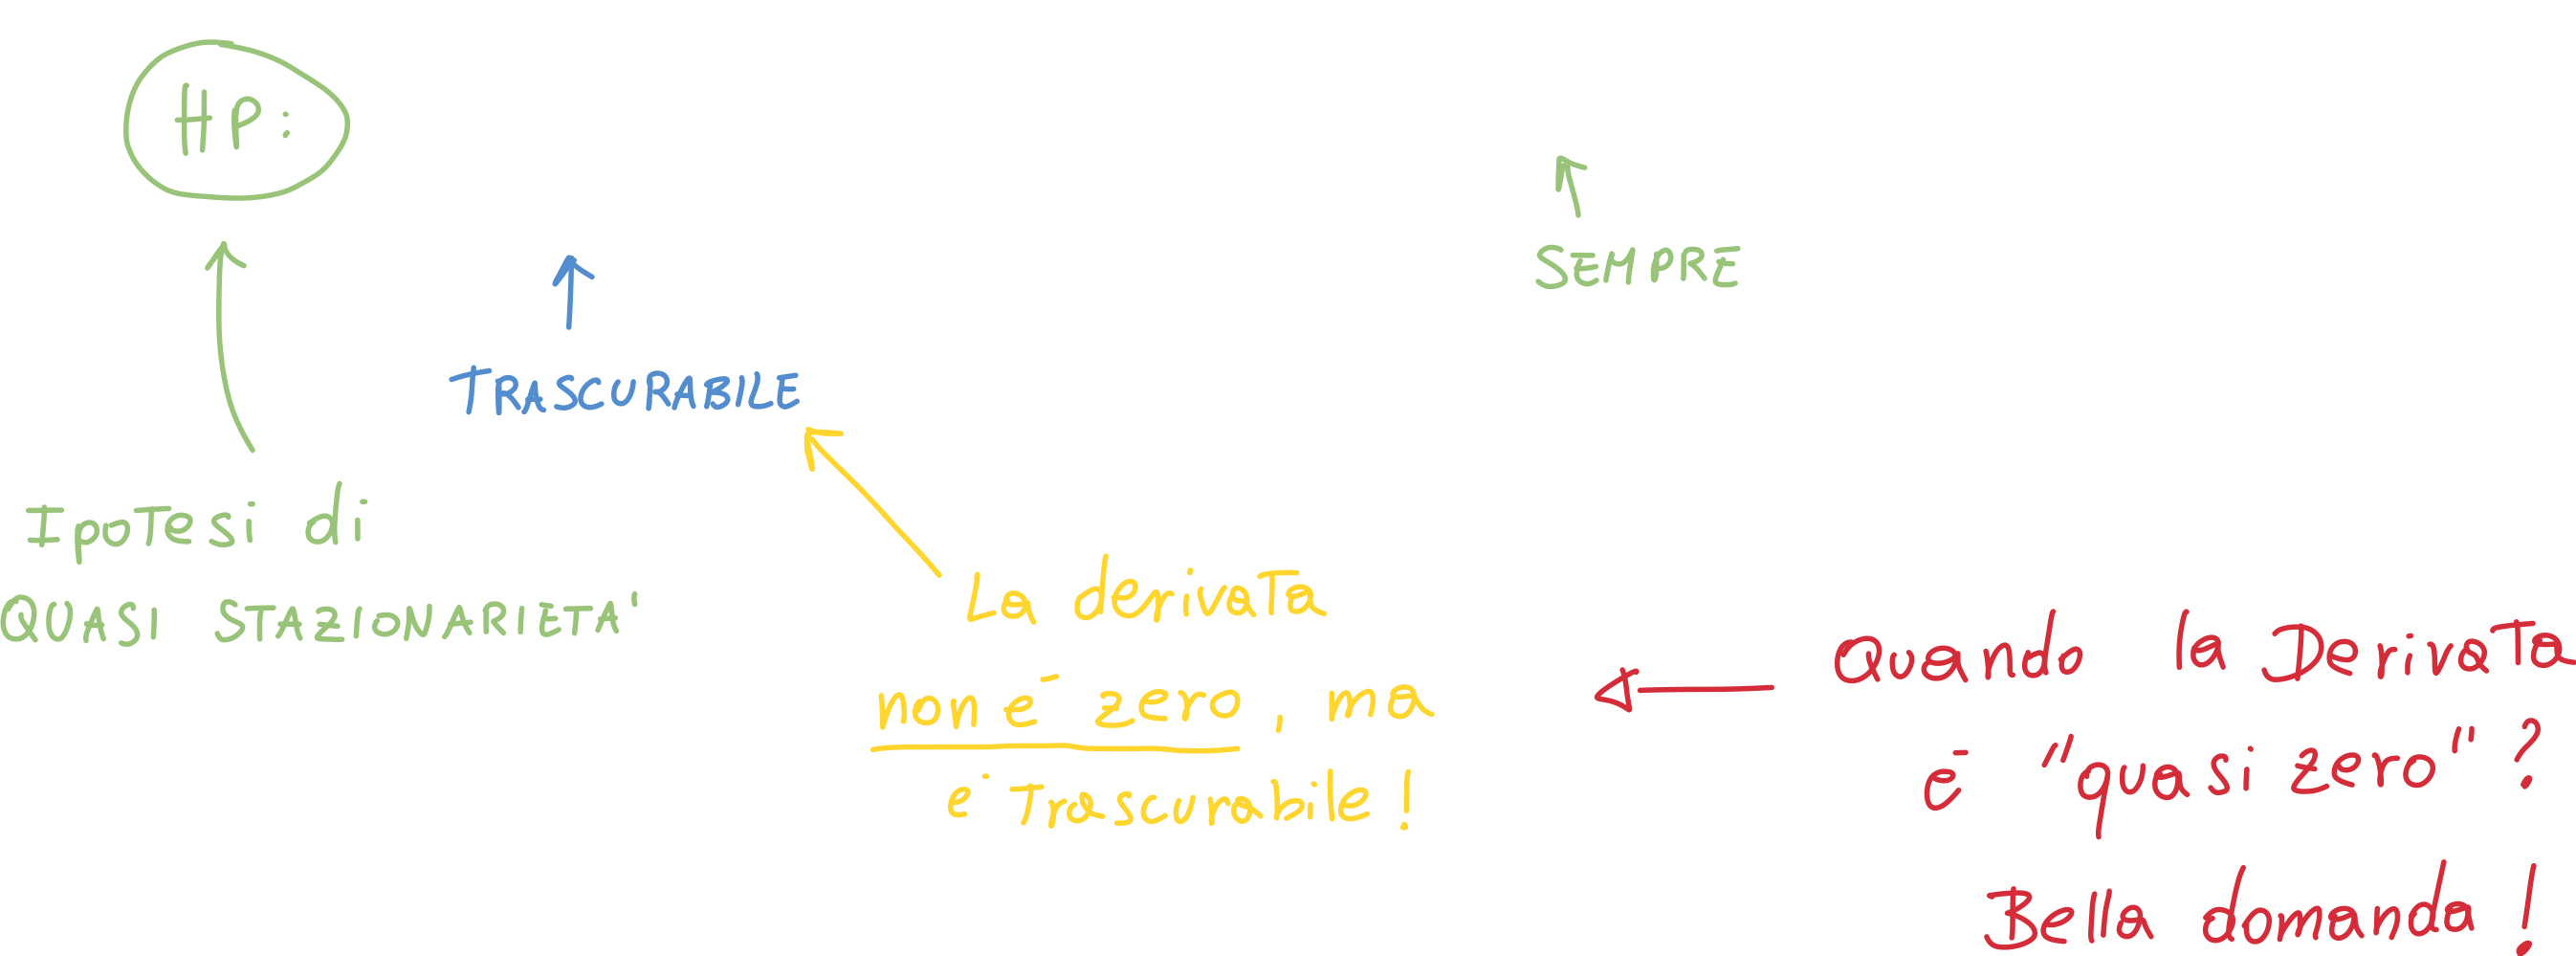 HP:
SEMPRE
TRASCURABILE
Ipotesi di
QUASI STAZIONARIETA'
La derivata
non è zero, ma
e' trascurabile!
Quando la Derivata
è "quasi zero"?
Bella domanda!